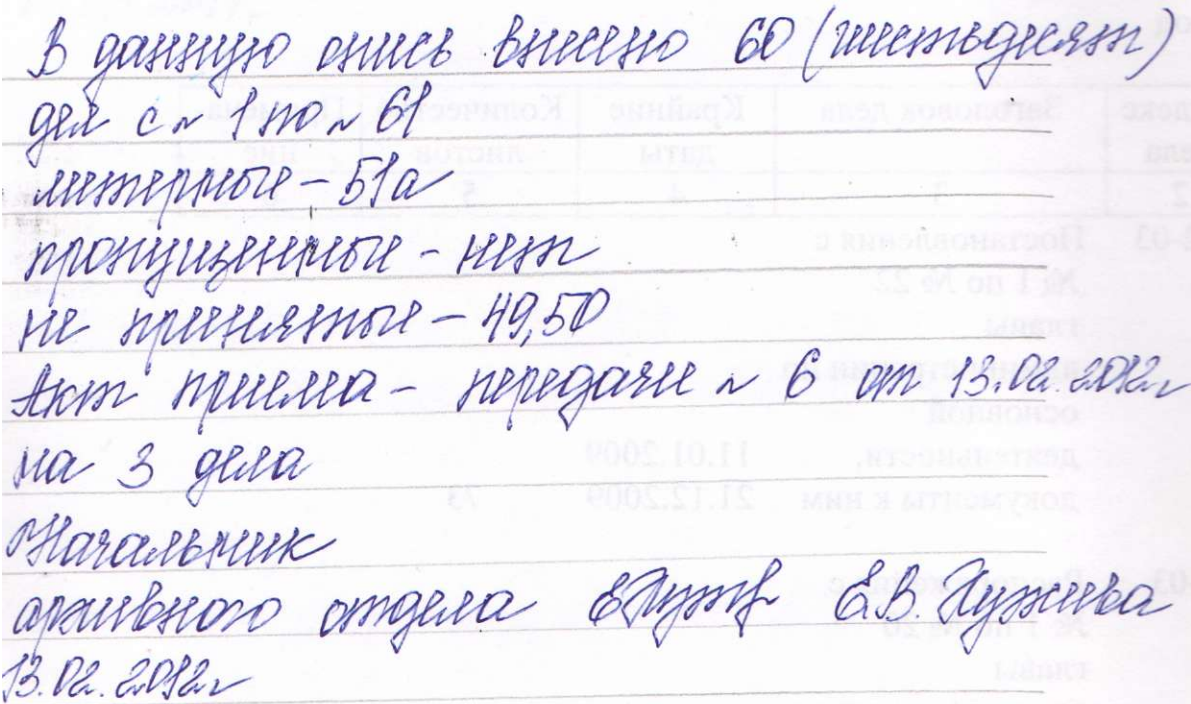 В данную опись внесено 60 (шестьдесят)
дел с № 1 по № 61
литерные - 51а
пропущенные - нет
не принятые - 49,50
Акт приема - передачи № 6 от 13.02.2012г
на 3 дела
Начальник
архивного отдела Е.В.
13.02.2012г